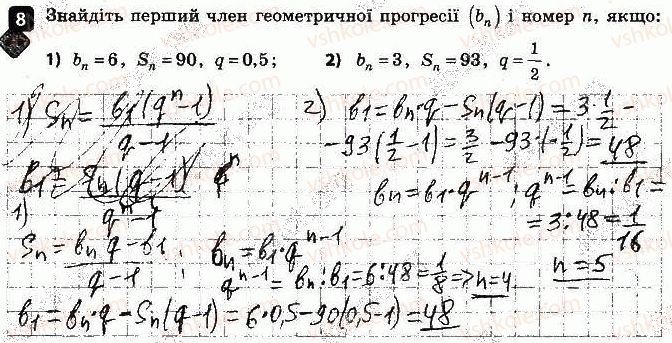 8 Знайдіть перший член геометричної прогресії (bₙ) і номер n, якщо:
1) bₙ = 6, Sₙ = 90, q = 0,5; 2) bₙ = 3, Sₙ = 93, q = 1/2.
1) Sₙ = b₁(qⁿ-1)/(q-1)
b₁ = Sₙ(q-1)/(qⁿ-1)
1)
Sₙ = (bₙq-b₁)/(q-1); bₙ = b₁·qⁿ⁻¹
qⁿ⁻¹ = bₙ:b₁ = 6:48 = 1/8 => n=4.
b₁ = bₙ·q - Sₙ(q-1) = 6·0,5-90(0,5-1) = 48
2) b₁ = bₙ·q - Sₙ(q-1) = 3·1/2 -
- 93(1/2 - 1) = 3/2 - 93·(-1/2) = 48
bₙ = b₁·qⁿ⁻¹; qⁿ⁻¹ = bₙ:b₁ =
= 3:48 = 1/16
n = 5